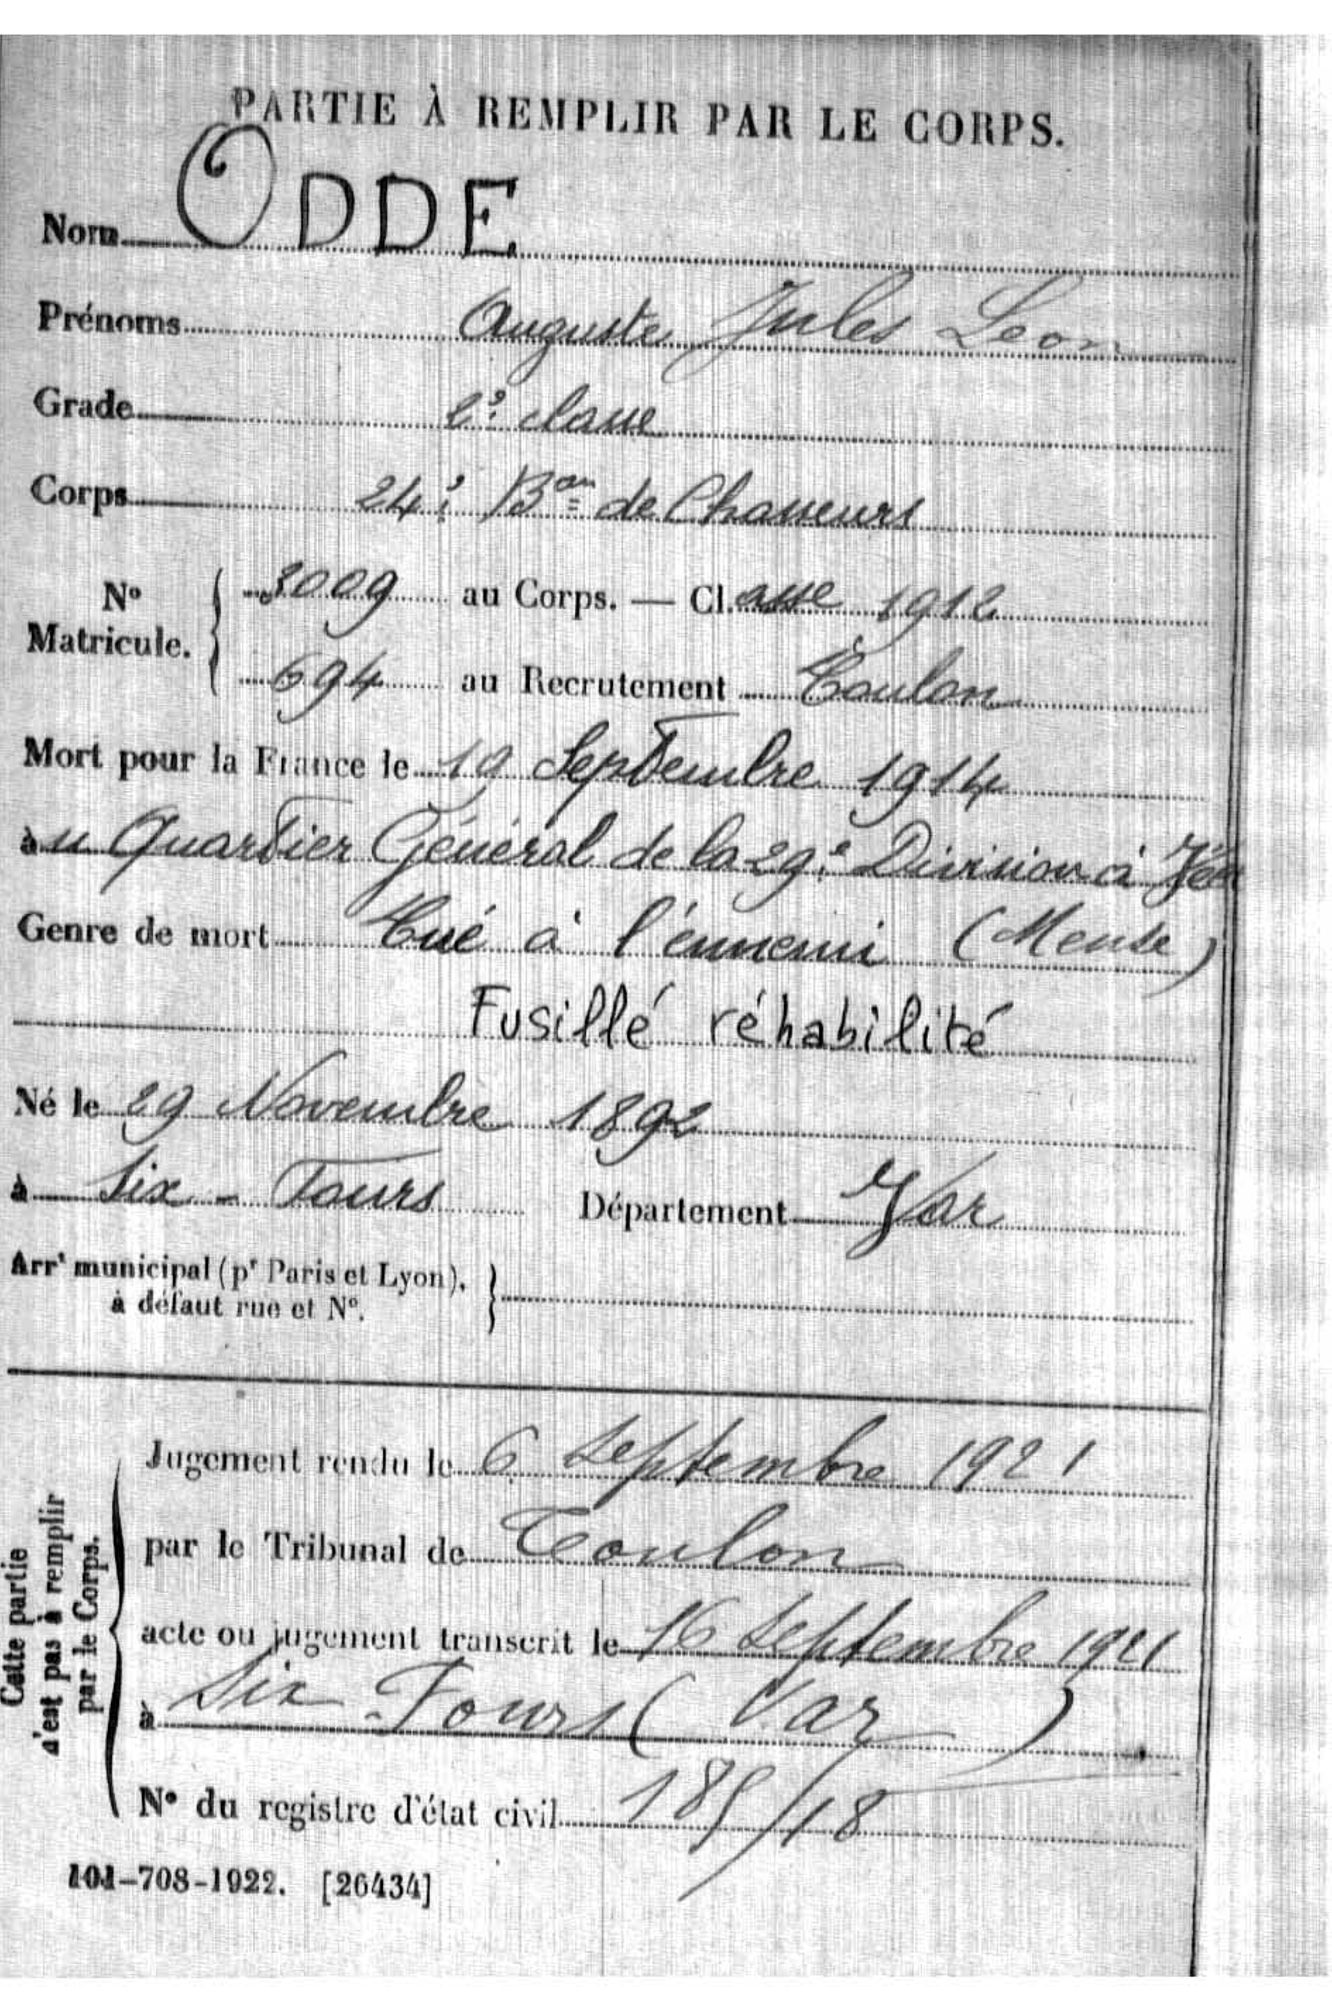 PARTIE À REMPLIR PAR LE CORPS.
Nom ODDE
Prénoms Auguste Jules Léon
Grade 2e classe
Corps 24e Bon de Chasseurs
No Matricule. 3009 au Corps. — Classe 1912
694 au Recrutement Toulon
Mort pour la France le 19 Septembre 1914
au Quartier Général de la 29e Division à
Genre de mort Tué à l'ennemi (Meuse)
Fusillé réhabilité
Né le 29 Novembre 1892
à Six-Fours Département Var
Arrt municipal (pr Paris et Lyon),
à défaut rue et No.
Cette partie
n'est pas à remplir
par le Corps.
Jugement rendu le 6 Septembre 1921
par le Tribunal de Toulon
acte ou jugement transcrit le 16 Septembre 1921
à Six-Fours (Var)
No du registre d'état civil 185/18
101-708-1922. [26434]